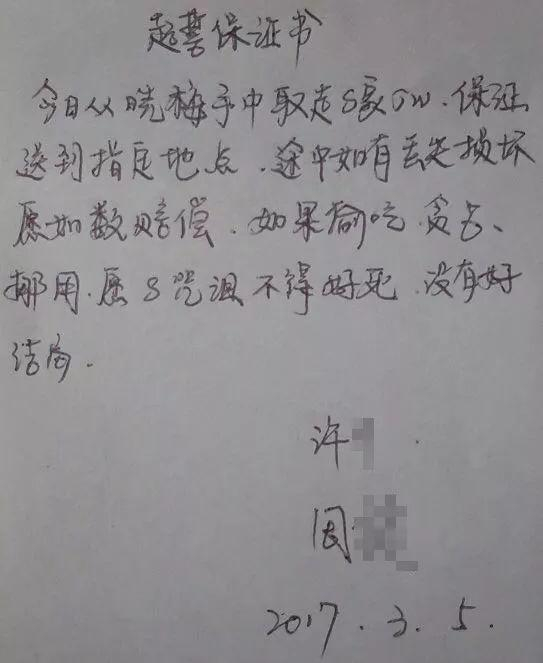 起誓保证书
今日从晓梅手中取走S家5W.保证
送到指定地点.途中如有丢失损坏
愿如数赔偿.如果偷吃.贪占、
挪用.愿S咒诅不得好死.没有好
结局.
许
周
2017.3.5.